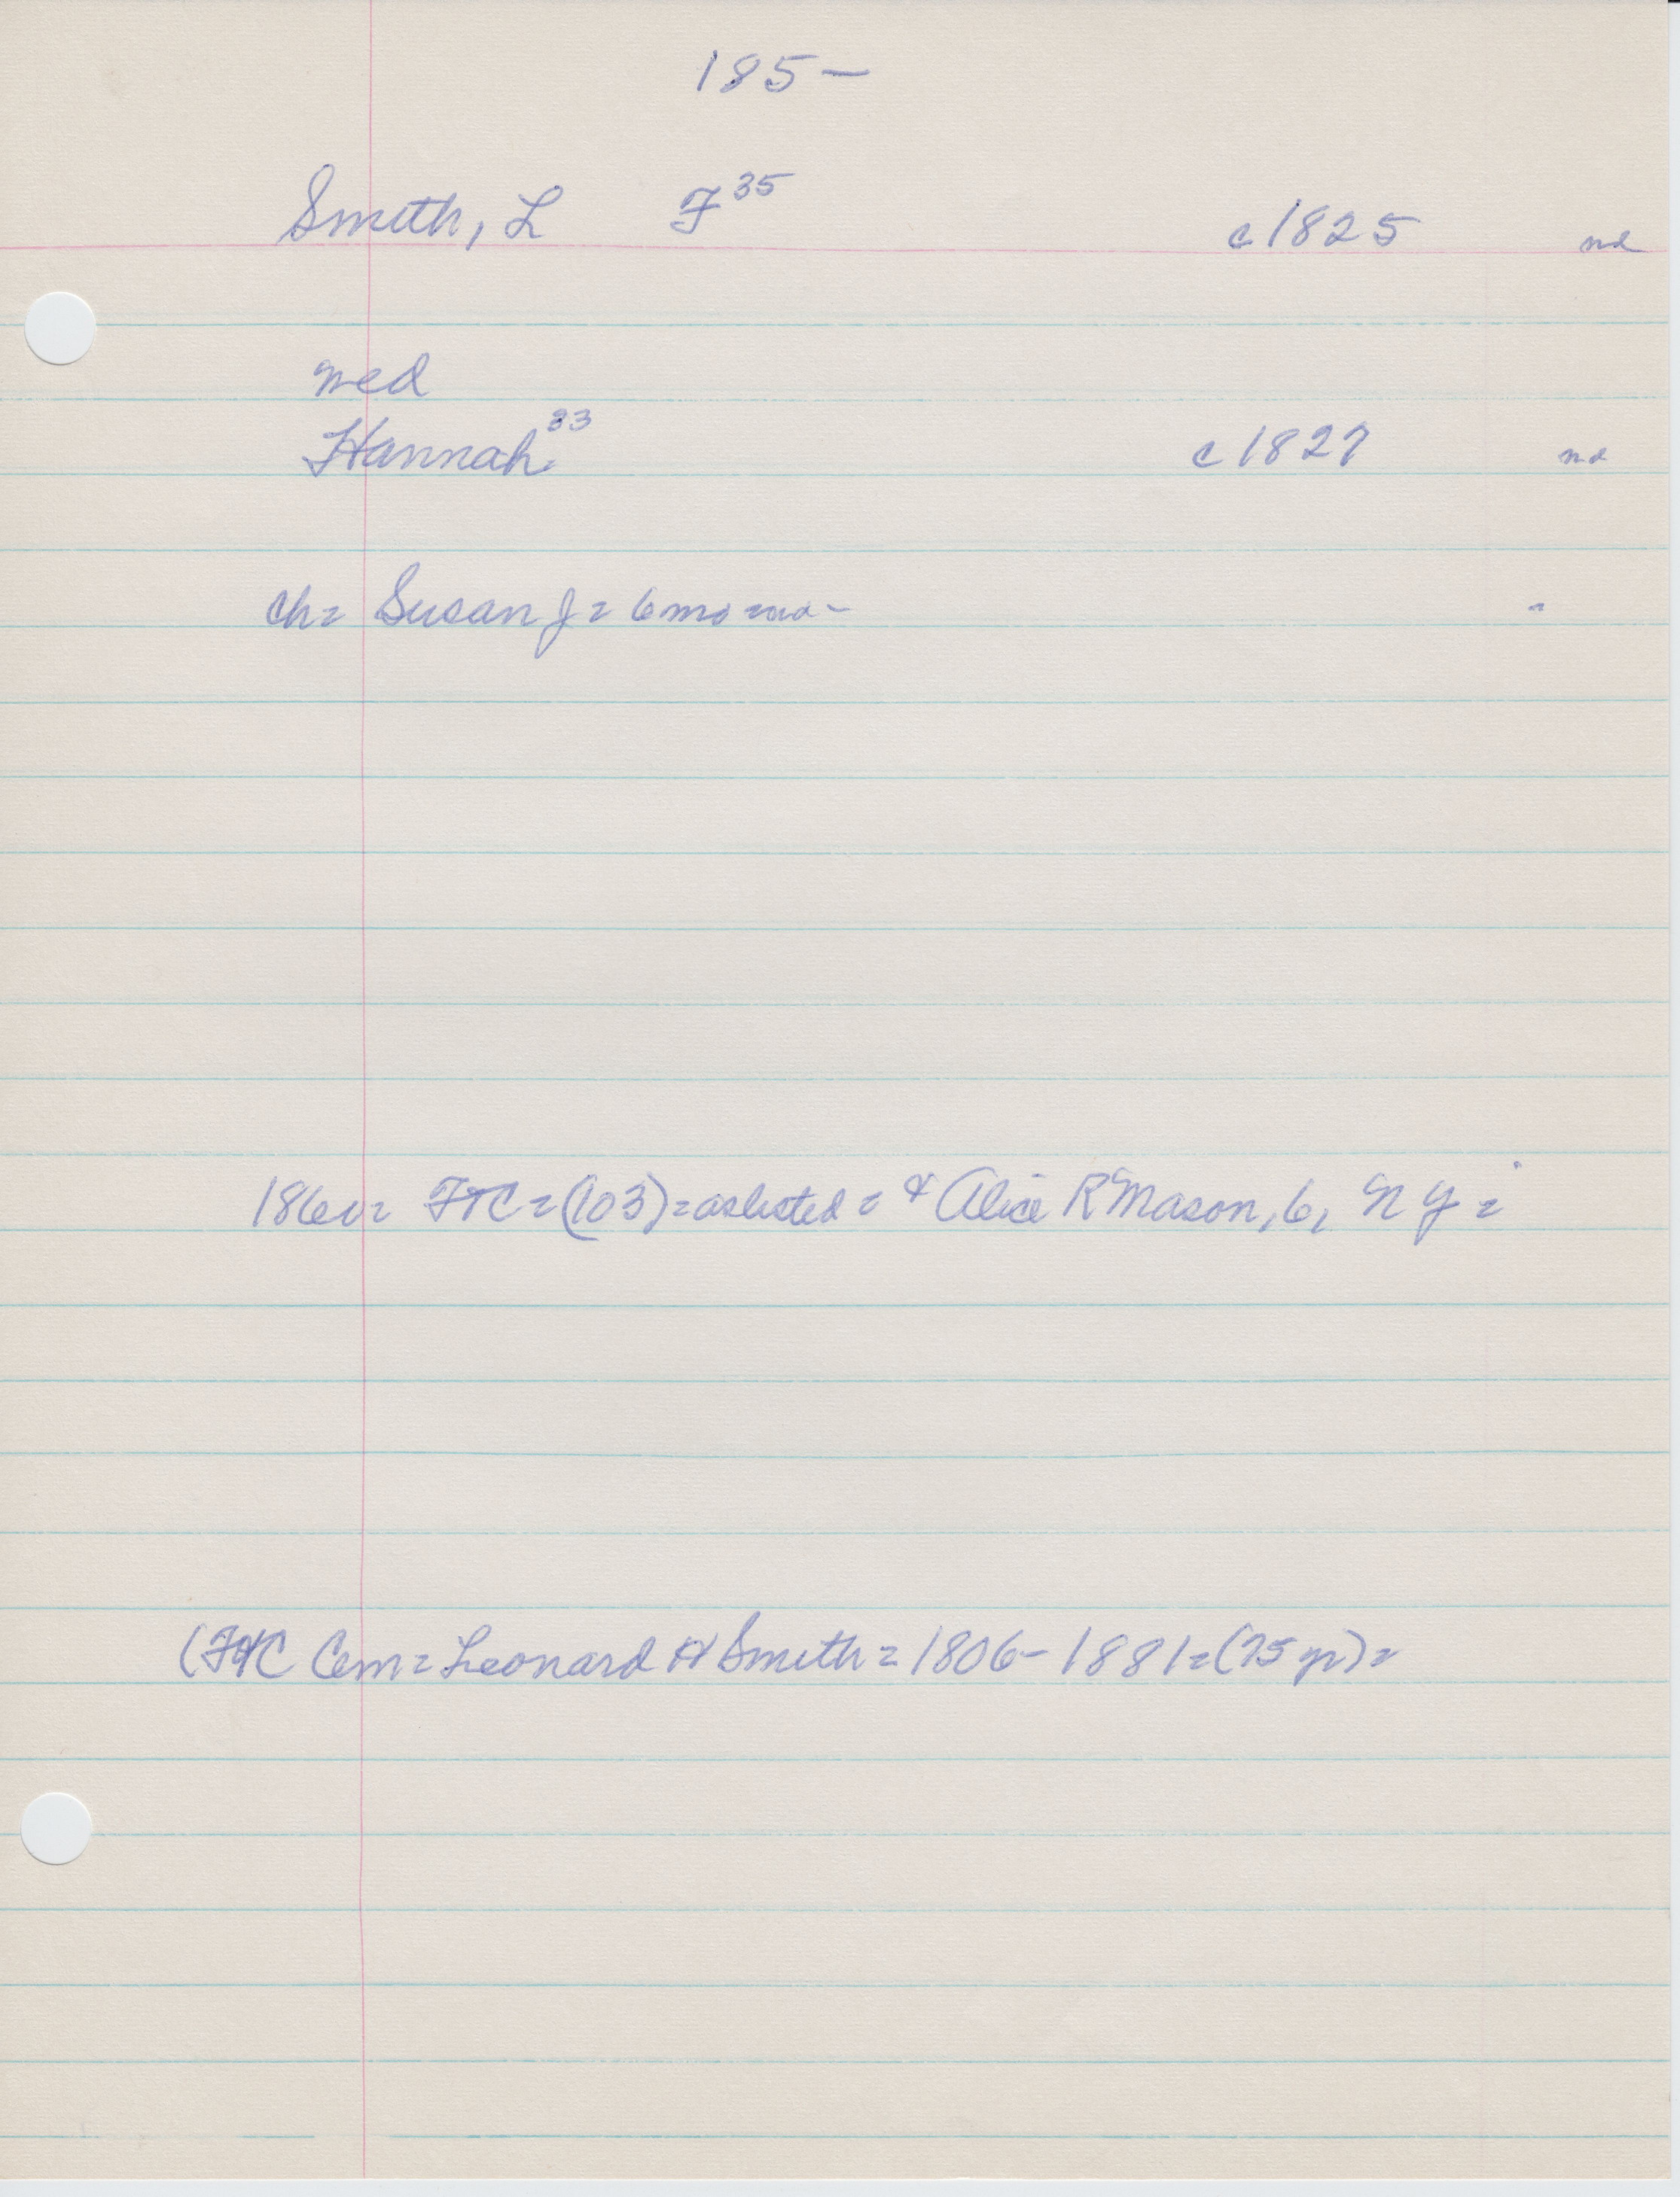 185-
Smith, L F 35 c 1825 md
med
Hannah 33 c 1827 md
ch= Susan J = 6 mo = md -
1860= FTC = (103) = as listed = & Alice R Mason, 6, N Y =
(FHC Cem = Leonard H Smith = 1806-1881 = (75 yr) =